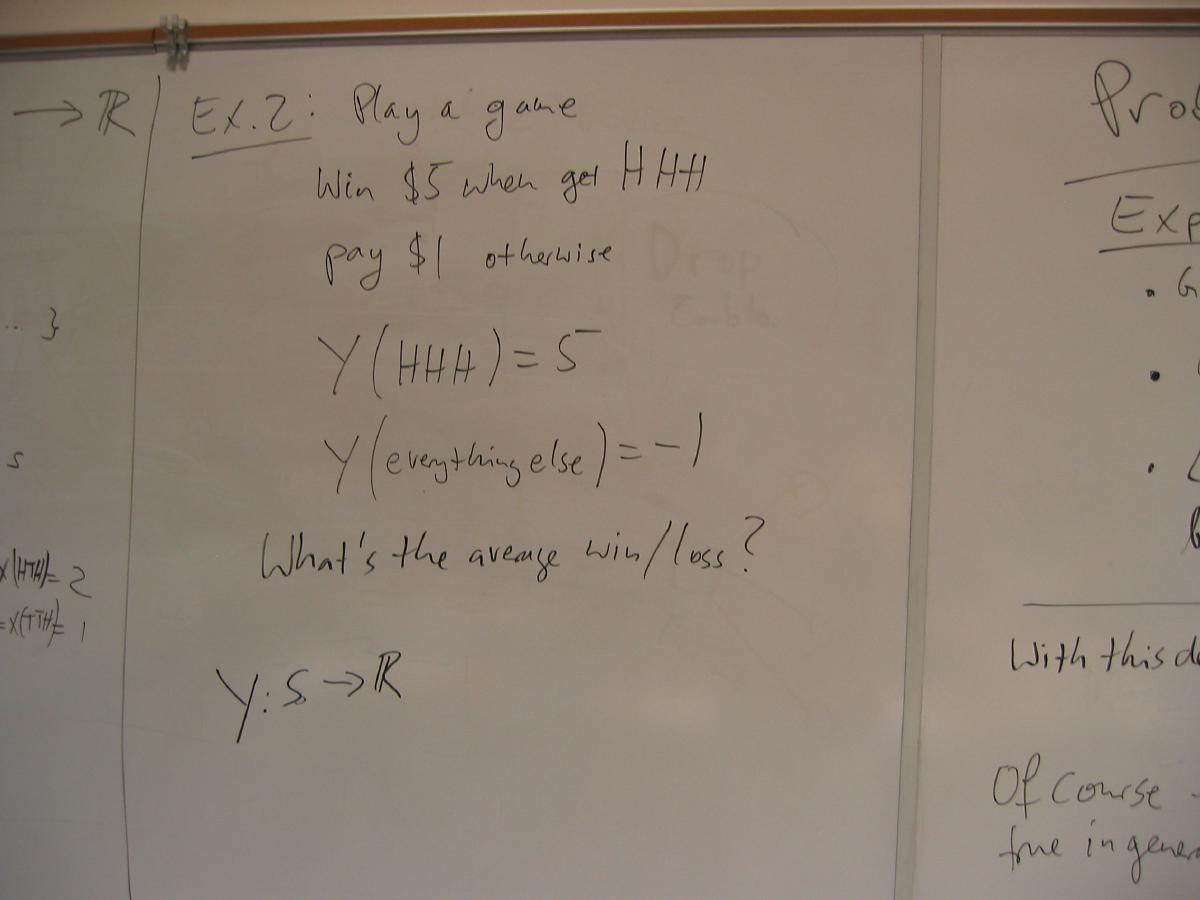 → ℝ
... }
s
X(HTH)= 2
=X(TTH)= 1
Ex.2: Play a game
Win $5 when get HHH
pay $1 otherwise
Y(HHH) = 5
Y(everything else) = -1
What's the average win/loss?
Y: S → ℝ
Prob
Exp
• G
•
•
With this de
Of course -
true in genera